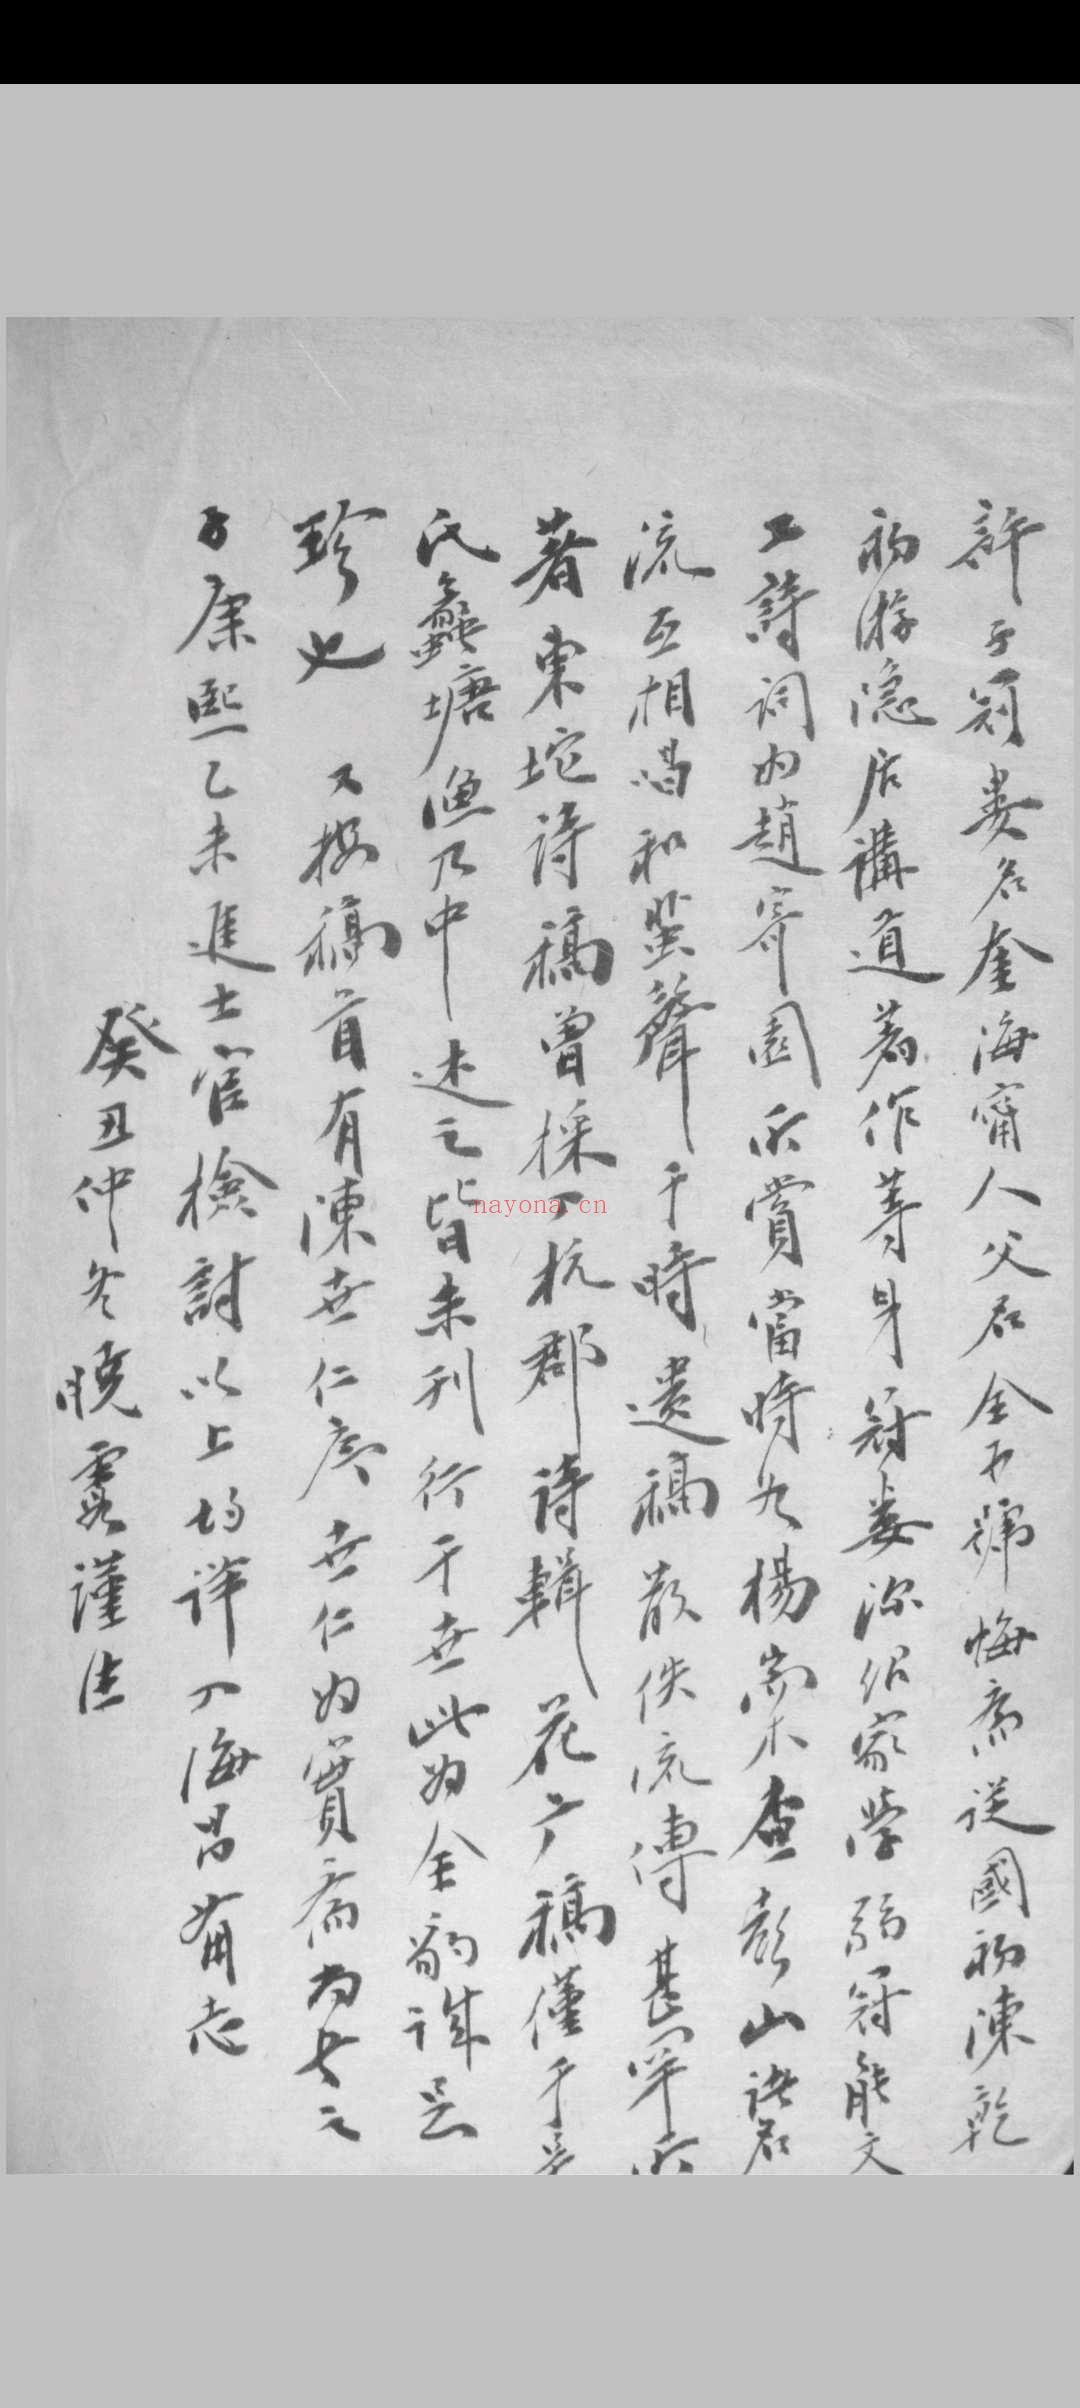 許子冠婁名奎海甯人父君全可號悔齋從國初陳乾
初游隱居講道著作等身冠婁深繼家學弱冠能文
工詩詞为趙寄園所賞當時尤楊崇木查彭山諸君
流互相唱和蜚聲于時遺稿散佚流傳甚罕所
著東垞詩稿曾採入杭郡詩輯花广稿僅于吴
氏蠡塘漁乃中述之皆未刊行于世此为全豹誠是
珍也 又按稿首有陳世仁序世仁为實齋尚書之
子康熙乙未進士官檢討以上均詳入海昌備志
癸丑仲冬曉霞謹注
nayona.cn